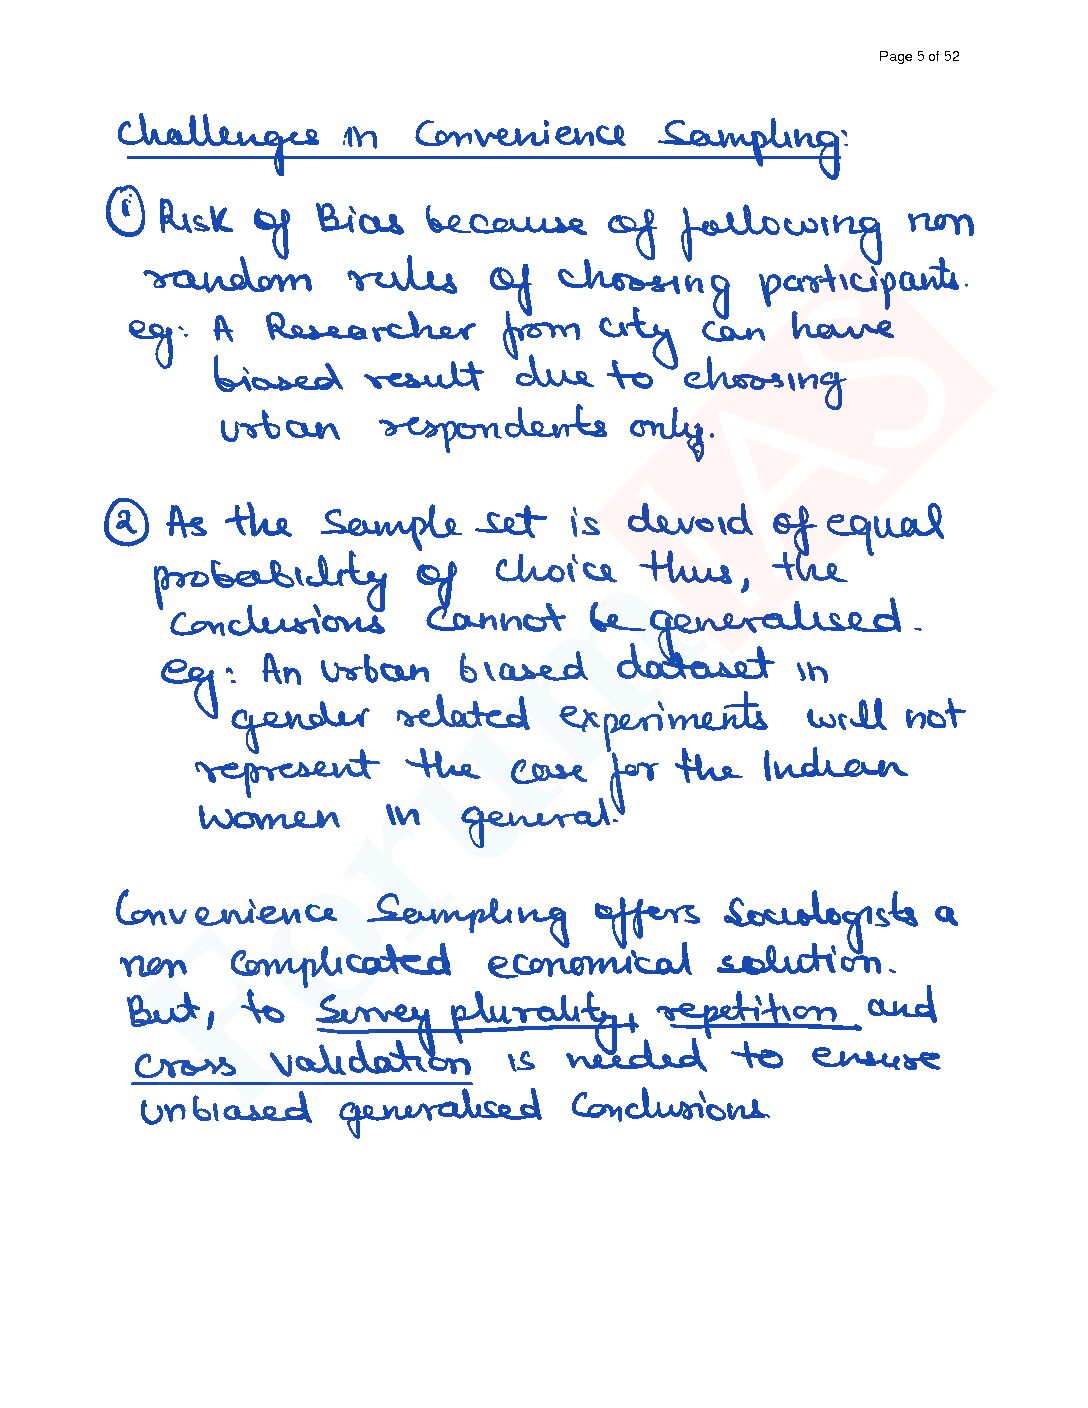 Page 5 of 52
Challenges in Convenience Sampling:
① Risk of Bias because of following non
random rules of choosing participants.
eg: A Researcher from city can have
biased result due to choosing
urban respondents only.
② As the Sample set is devoid of equal
probability of choice thus, the
Conclusions cannot be generalised.
eg: An urban biased dataset in
gender related experiments will not
represent the case for the Indian
women in general.
Convenience Sampling offers Sociologists a
non complicated economical solution.
But, to Survey plurality, repetition and
cross validation is needed to ensure
unbiased generalised Conclusions.
ForumIAS